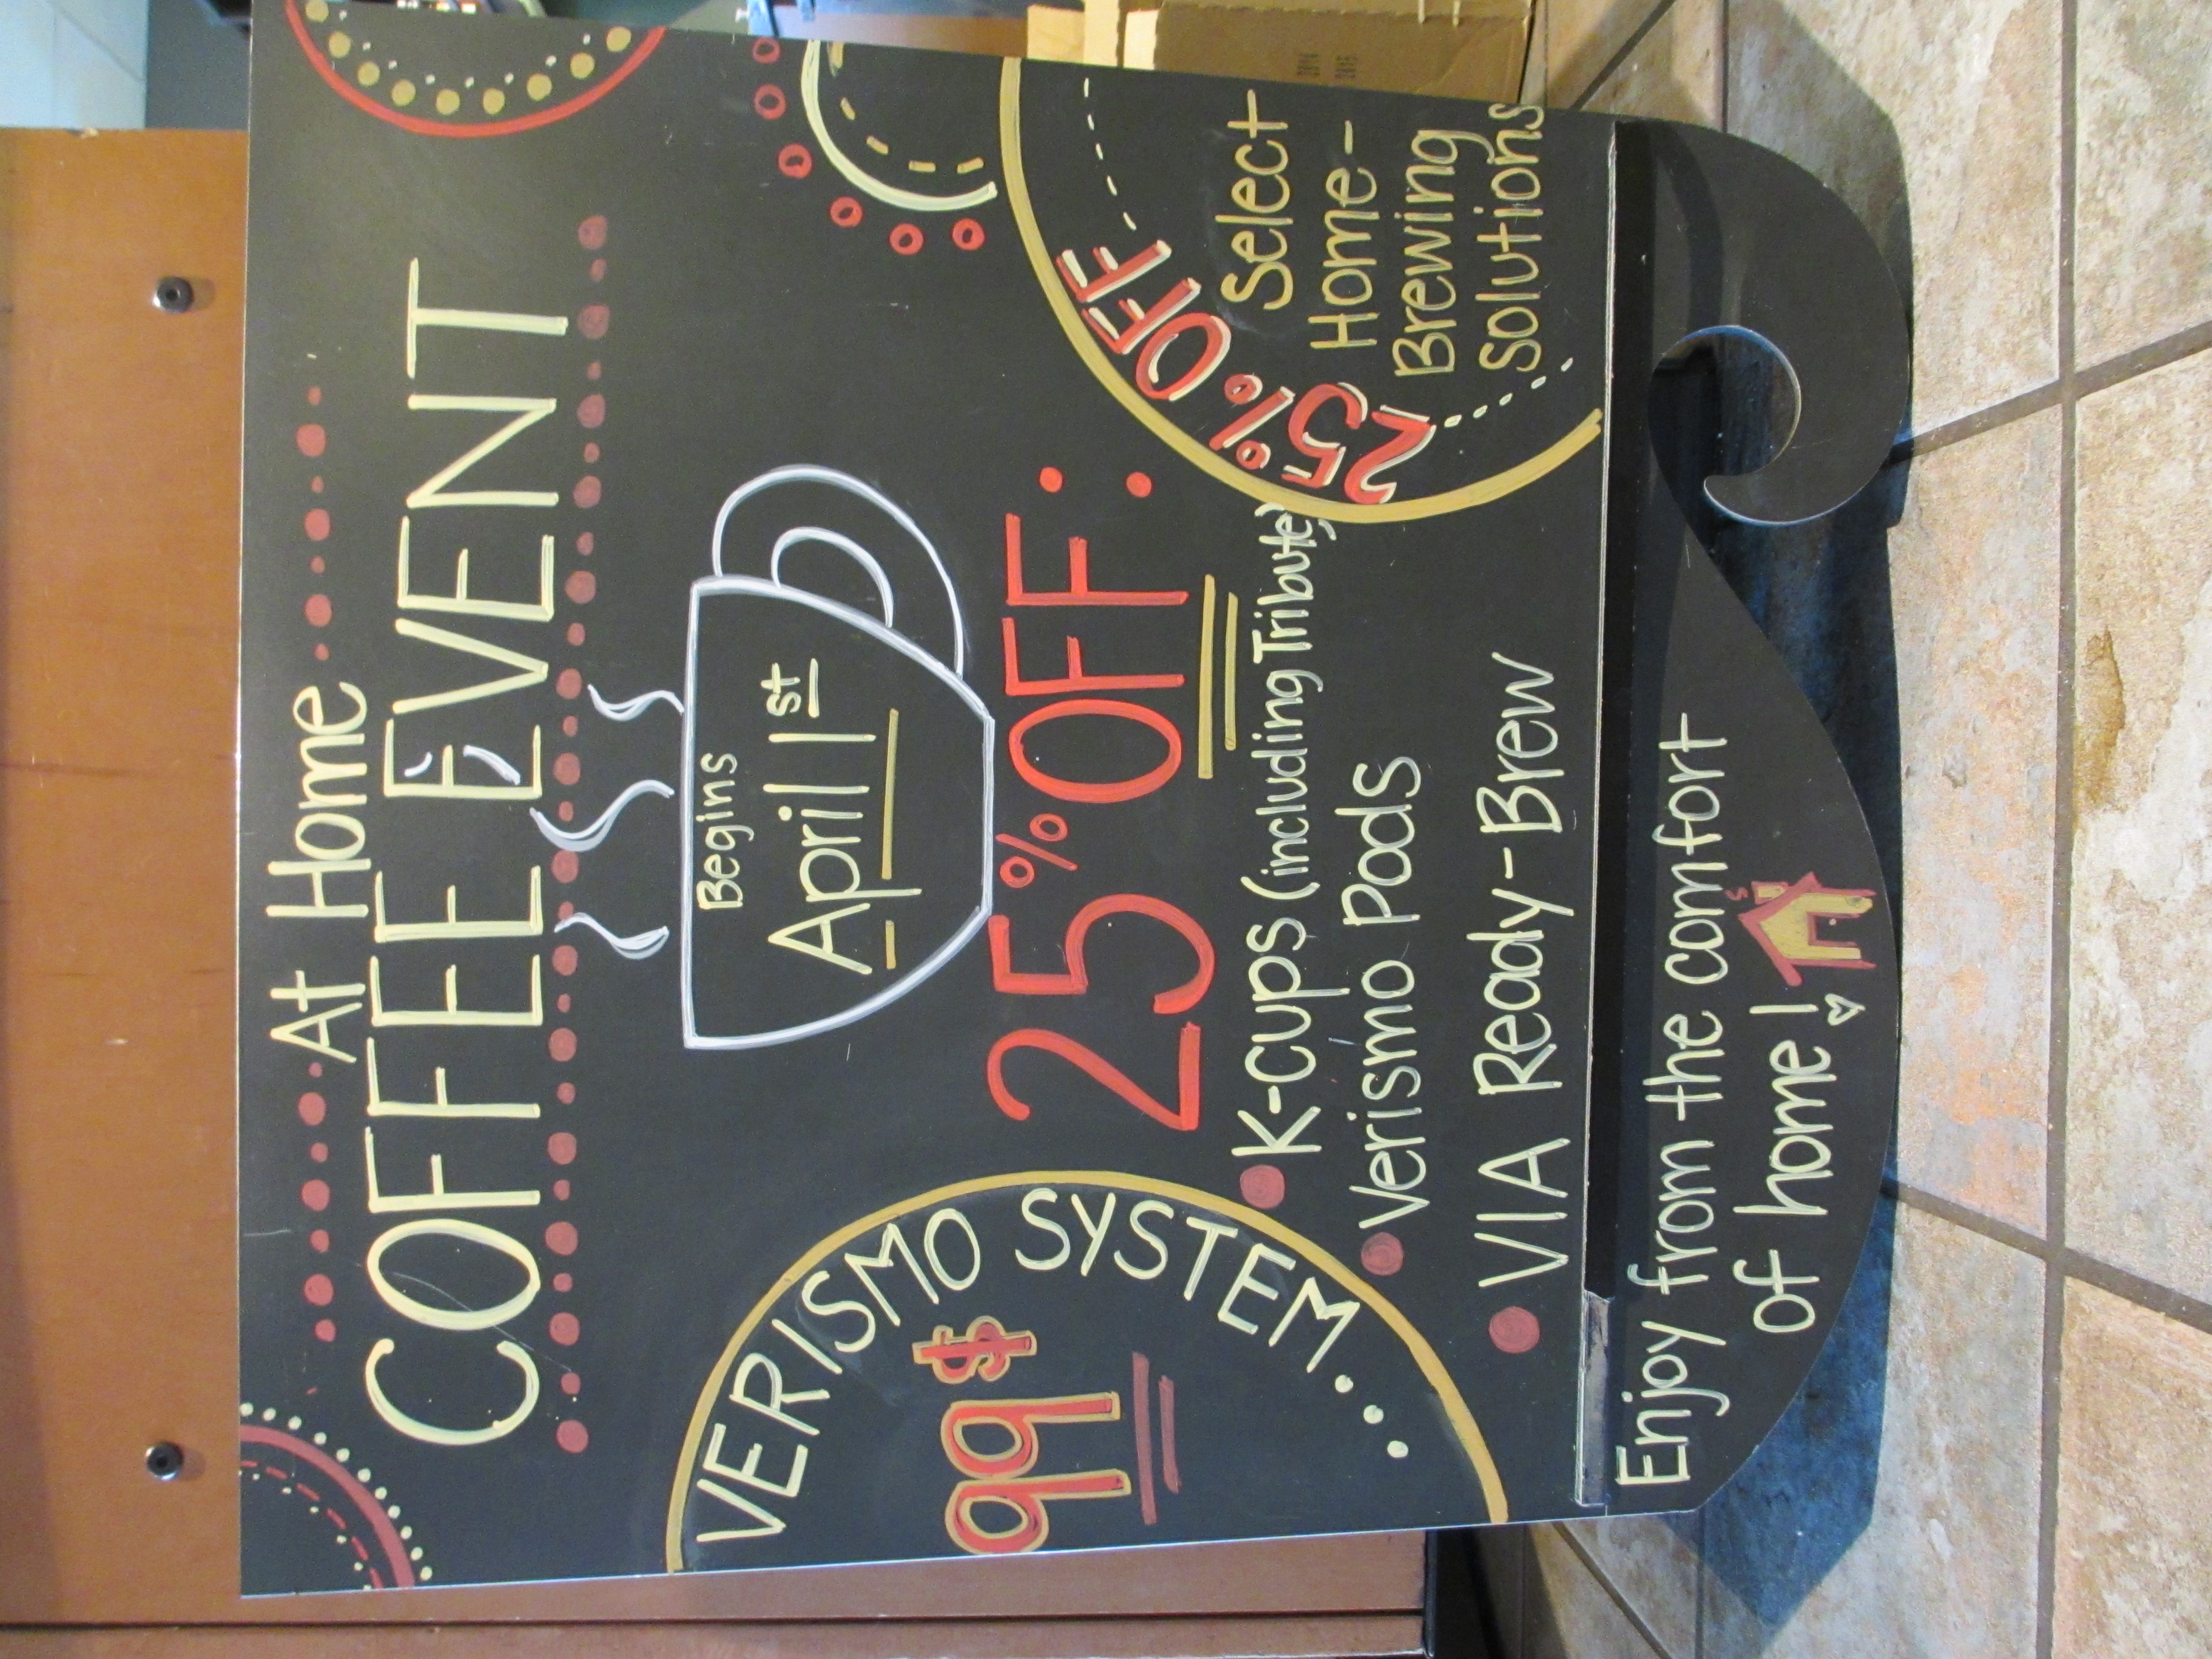 At Home
COFFEE EVENT
Begins
April 1st
VERISMO SYSTEM...
99$
25% OFF:
K-cups (including Tribute)
Verismo Pods
VIA Ready-Brew
25% OFF
Select
Home-
Brewing
Solutions
Enjoy from the comfort
of home!